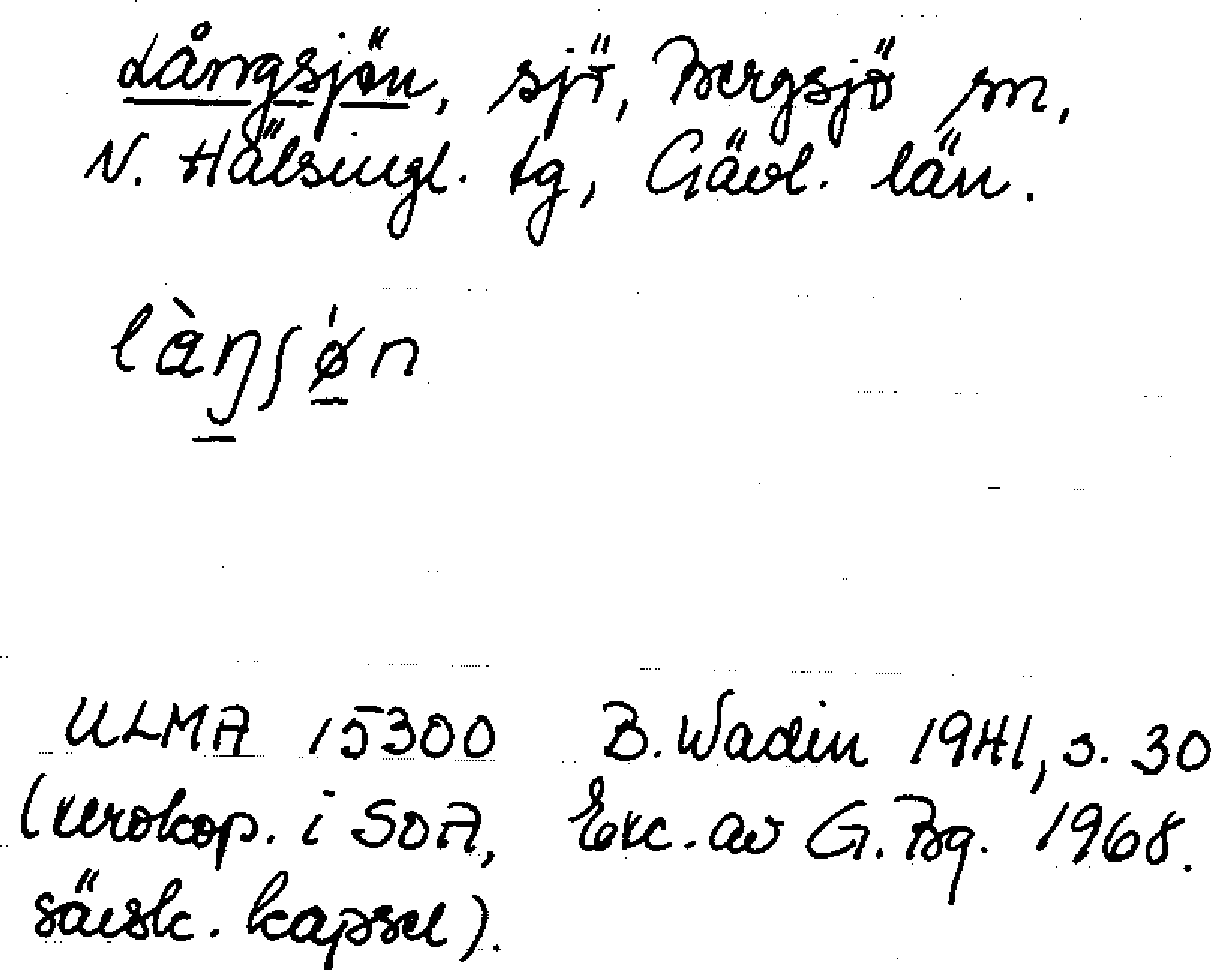 Långsjön, sjö, Bergsjö sn,
N. Hälsingl. tg, Gävl. län.
làŋʃø̀n
ULMA 15300 B. Wadin 1941, s. 30
(xerokop. i SOA, Exc. av G. Bg. 1968.
särsk. kapsel).